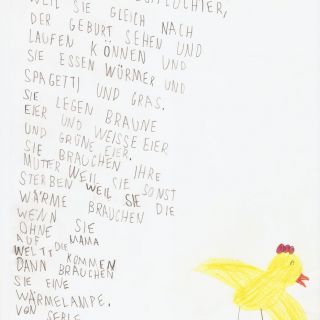 WEIL SIE GLEICH NACH
DER GEBURT SEHEN UND
LAUFEN KÖNNEN UND
SIE ESSEN WÜRMER UND
SPAGETTI UND GRAS.
SIE LEGEN BRAUNE
EIER UND WEISSE EIER
UND GRÜNE EIER.
SIE BRAUCHEN IHRE
MUTTER WEIL SIE SONST
STERBEN WEIL SIE DIE
WÄRME BRAUCHEN
WENN SIE
OHNE MAMA
AUF DIE
WELT KOMMEN
DANN BRAUCHEN
SIE EINE
WÄRMELAMPE.
VON